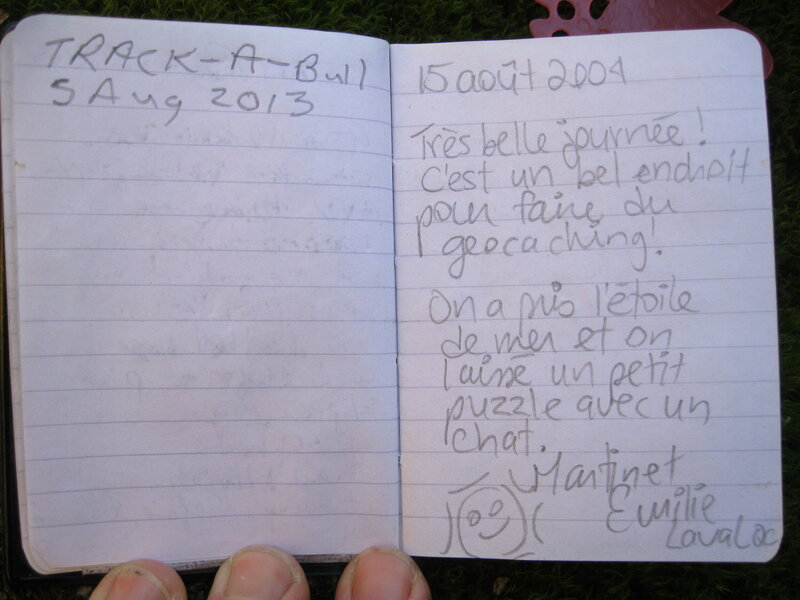 TRACK-A-Bull
5 Aug 2013
15 août 2004
Très belle journée!
C'est un bel endroit
pour faire du
geocaching!
On a pris l'étoile
de mer et on
laissé un petit
puzzle avec un
chat.
Martin et
Emilie
Laval Qc